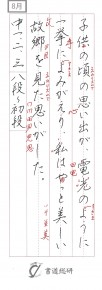 8月
子供の頃の思い出が、電光のように
一挙によみがえり、私はやっと美しい
故郷を見た思いがした。
中一、二、三 八段〜初段
書道総研